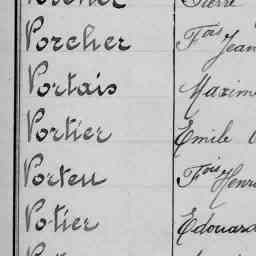 Pierre
Porcher Fois Jean
Portais Maxim
Portier Emile
Porteu Fois Henri
Potier Edouard